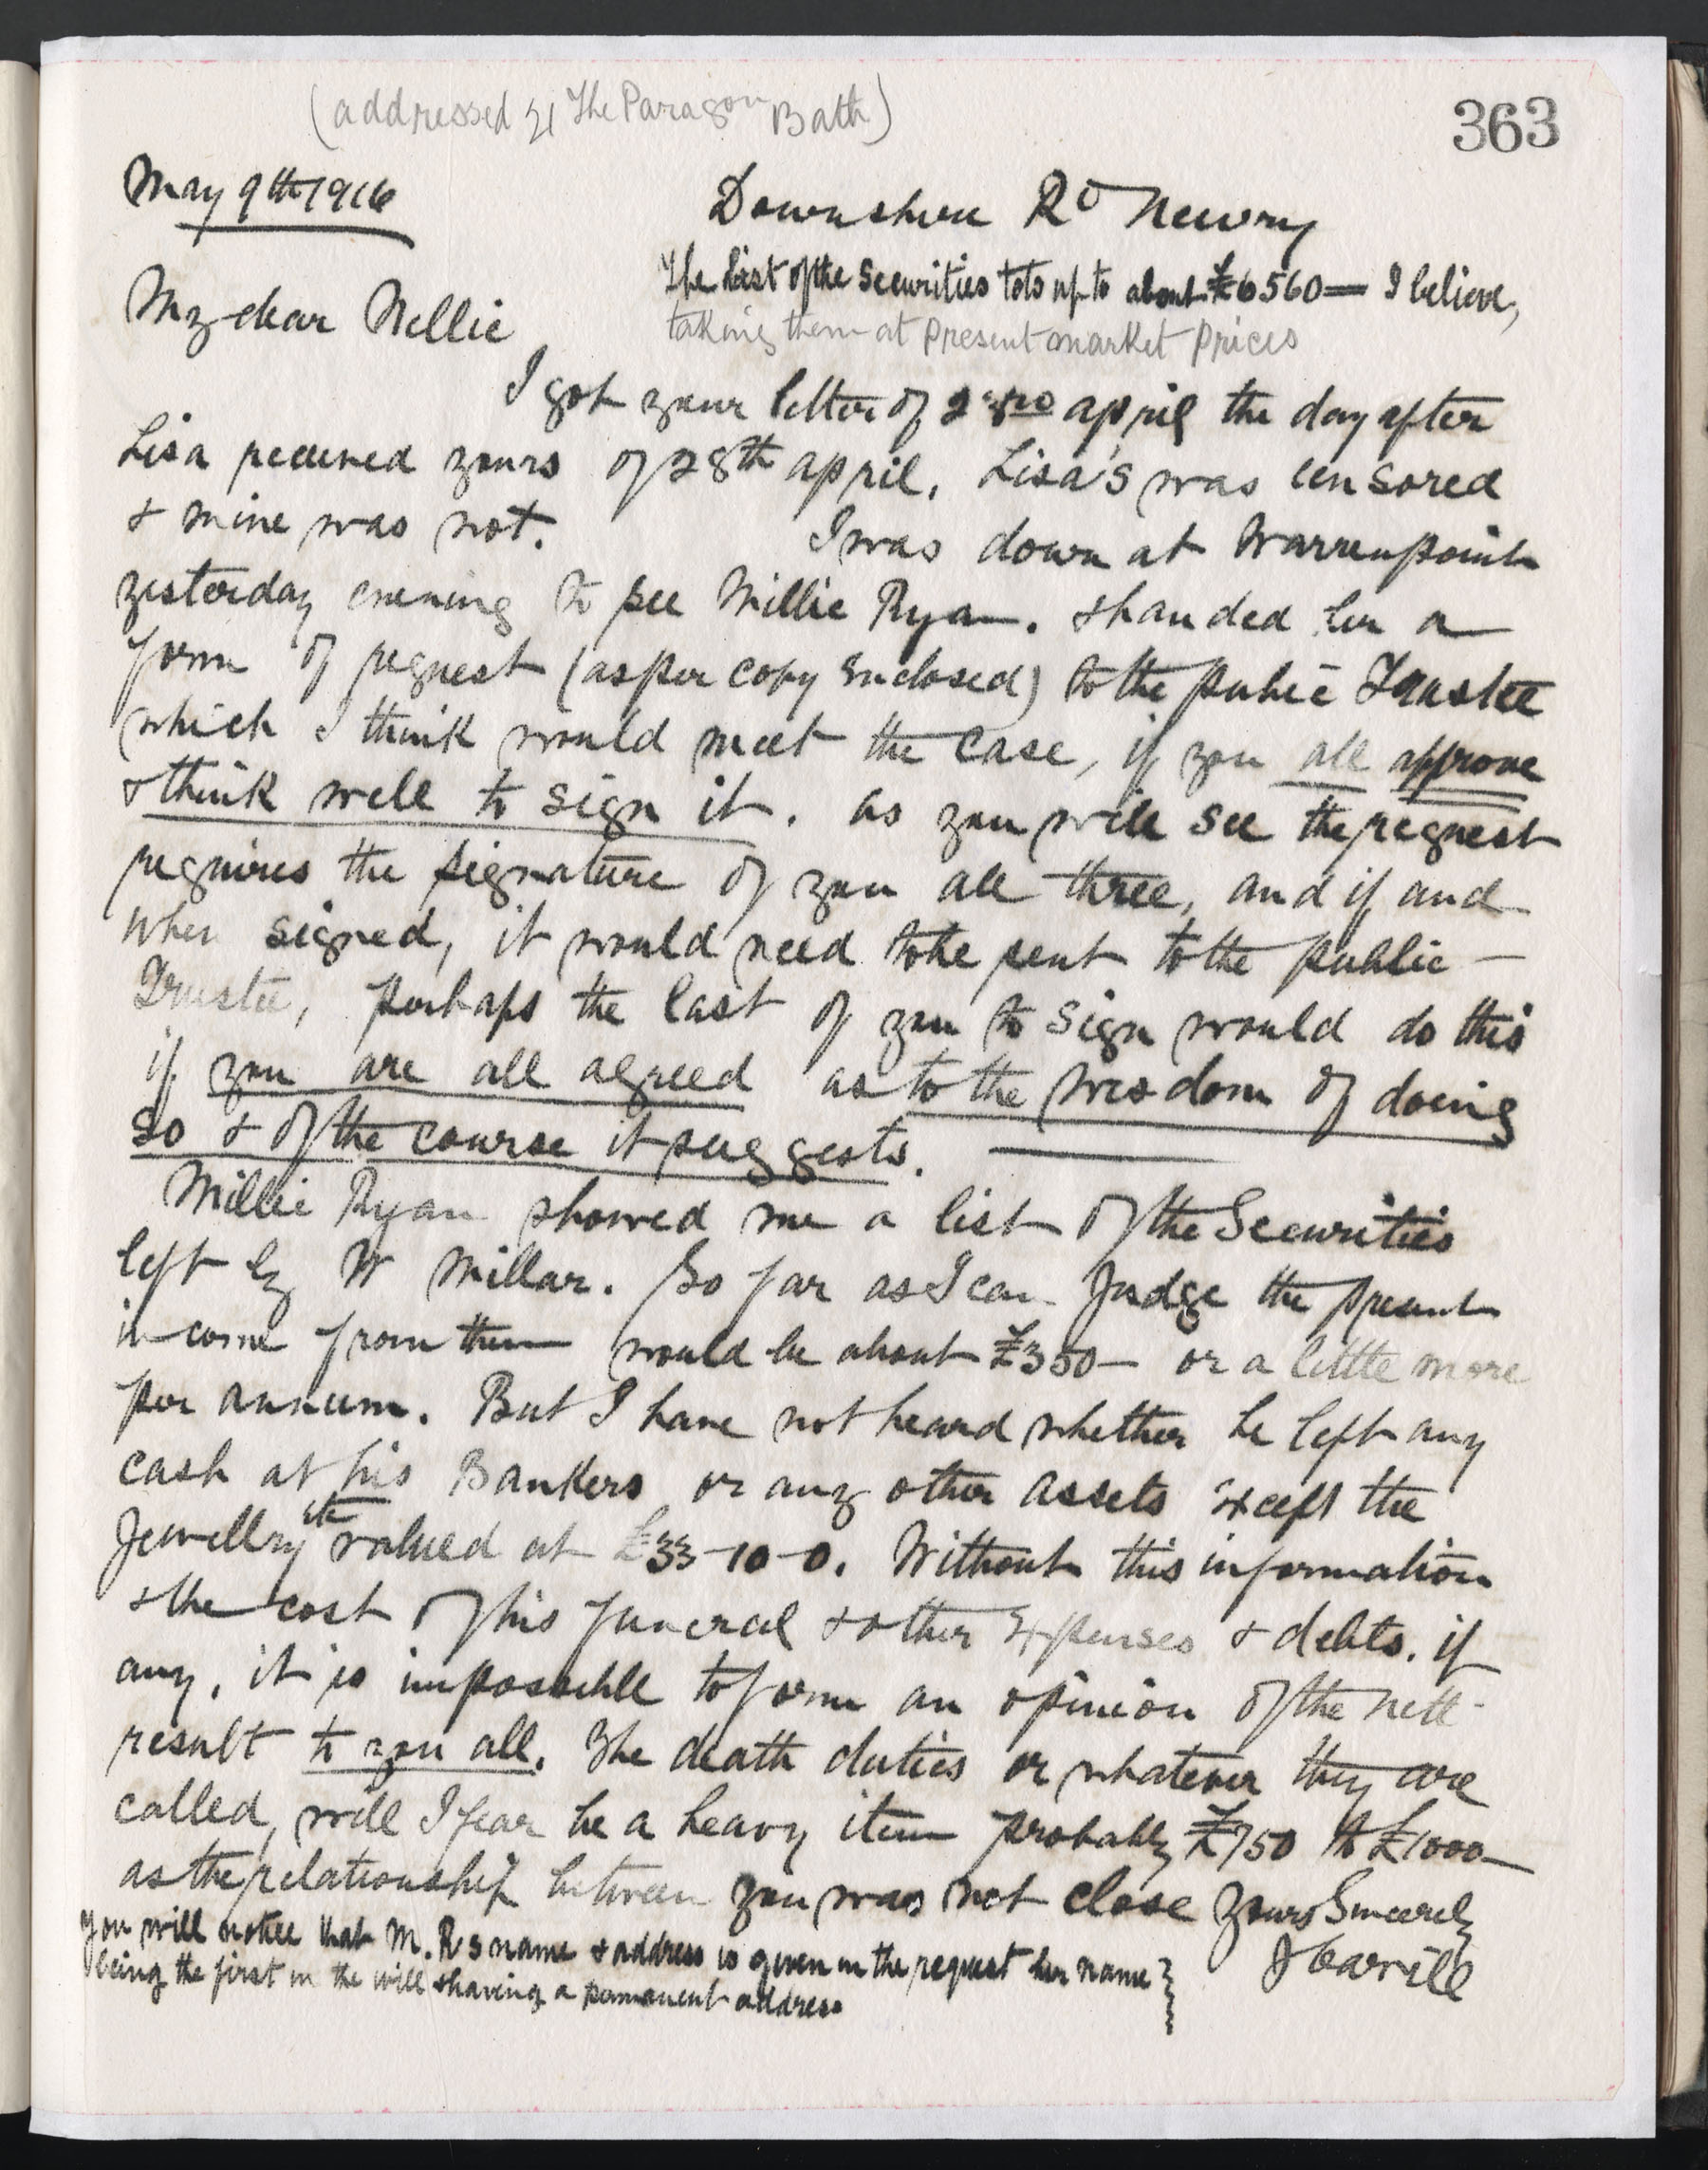 (addressed 21 The Paragon Bath)
363
May 9th 1916
Downshire Rd Newry
The list of the Securities tots up to about £6560 — I believe,
taking them at present market prices
My dear Nellie
I got your letter of 23rd april the day after
Lisa received yours of 28th april. Lisa's was censored
& mine was not. I was down at Warrenpoint
yesterday evening to see Millie Ryan. & handed her a
form of request (as per copy enclosed) to the public Trustee
which I think would meet the case, if you all approve
& think well to sign it. as you will see the request
requires the signature of you all three, and if and
when signed, it would need to be sent to the public —
Trustee, perhaps the last of you to sign would do this
if you are all agreed as to the wisdom of doing
so & of the course it suggests. —
Millie Ryan showed me a list of the Securities
left by W Millar. So far as I can Judge the present
income from them would be about £350 — or a little more
per annum. But I have not heard whether he left any
cash at his Bankers or any other assets except the
Jewellry etc valued at £33-10-0. Without this information
& the cost of his funeral & other expenses & debts, if
any, it is impossible to form an opinion of the nett
result to you all. The death duties or whatever they are
called, will I fear be a heavy item probably £750 to £1000 —
as the relationship between you was not close Yours Sincerely
You will notice that M. R's name & address is given in the request her name
being the first in the will & having a permanent address
J Carvill